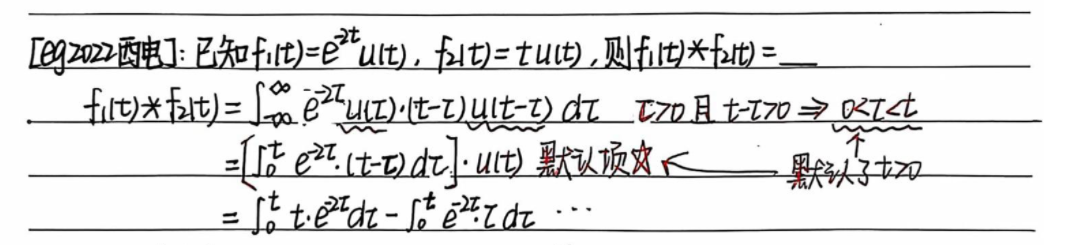 [eg2022西电]: 已知f₁(t)=e^{-2t}u(t), f₂(t)=tu(t), 则f₁(t)*f₂(t)=__
f₁(t)*f₂(t)=∫_{-∞}^{∞} e^{-2τ}u(τ)·(t-τ)u(t-τ)dτ τ>0且t-τ>0 ⇒ 0<τ<t
=[∫₀ᵗ e^{-2τ}·(t-τ)dτ]·u(t) 默认项☆ ← 默认了t>0
=∫₀ᵗ t·e^{-2τ}dτ-∫₀ᵗ e^{-2τ}·τdτ ···